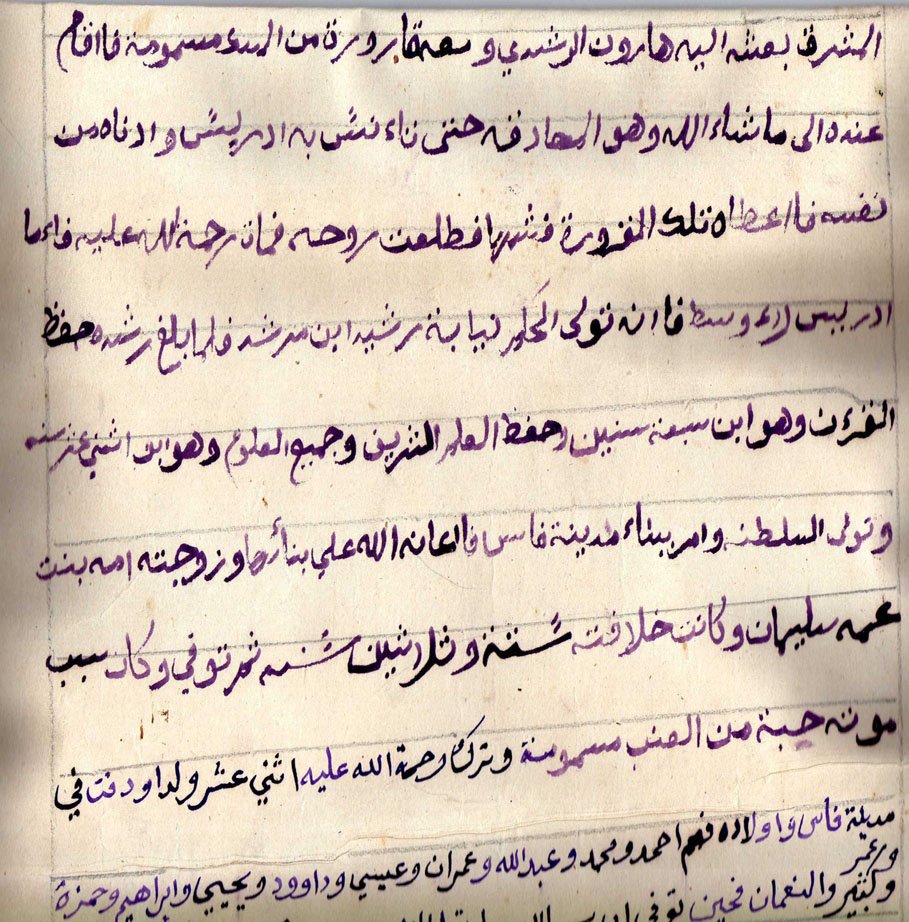 المشرق بعثه اليه هارون الرشدي و معه قارورة من المسك مسمومة فااقام
عنده الى ما شاء الله وهو المصادفه حتى تاءنس به ادريس وادناه من
نفسه فااعطاه تلك القرورة فشمها فطلعت روحه فمات رحمة الله عليه فاءما
ادريس وسط فاانه تولى الحكم نيابة رشيد ابن مرشد فلما بلغ رشده حفظ
القرءن وهو ابن سبعة سنين وحفظ العلم الشريف وجميع العلوم وهو ابن اثني عشر سنه
وتولى السلطنه وامر ببناء مدينة فاس فااعانه الله علي بنائها وزوجته امه بنت
عمه سليمان وكانت خلافته ستة وثلاثين سنه ثم توفي وكان سبب
موته حبة من العنب مسمومة وترك رحمة الله عليه اثني عشر ولدا ودفن في
مدينة فاس واولاده فهم احمد ومحمد وعبدالله وعمران وعيسي وداوود ويحيي وابراهيم وحمزة
وعمر
وكثير والنعمان فحين توفي